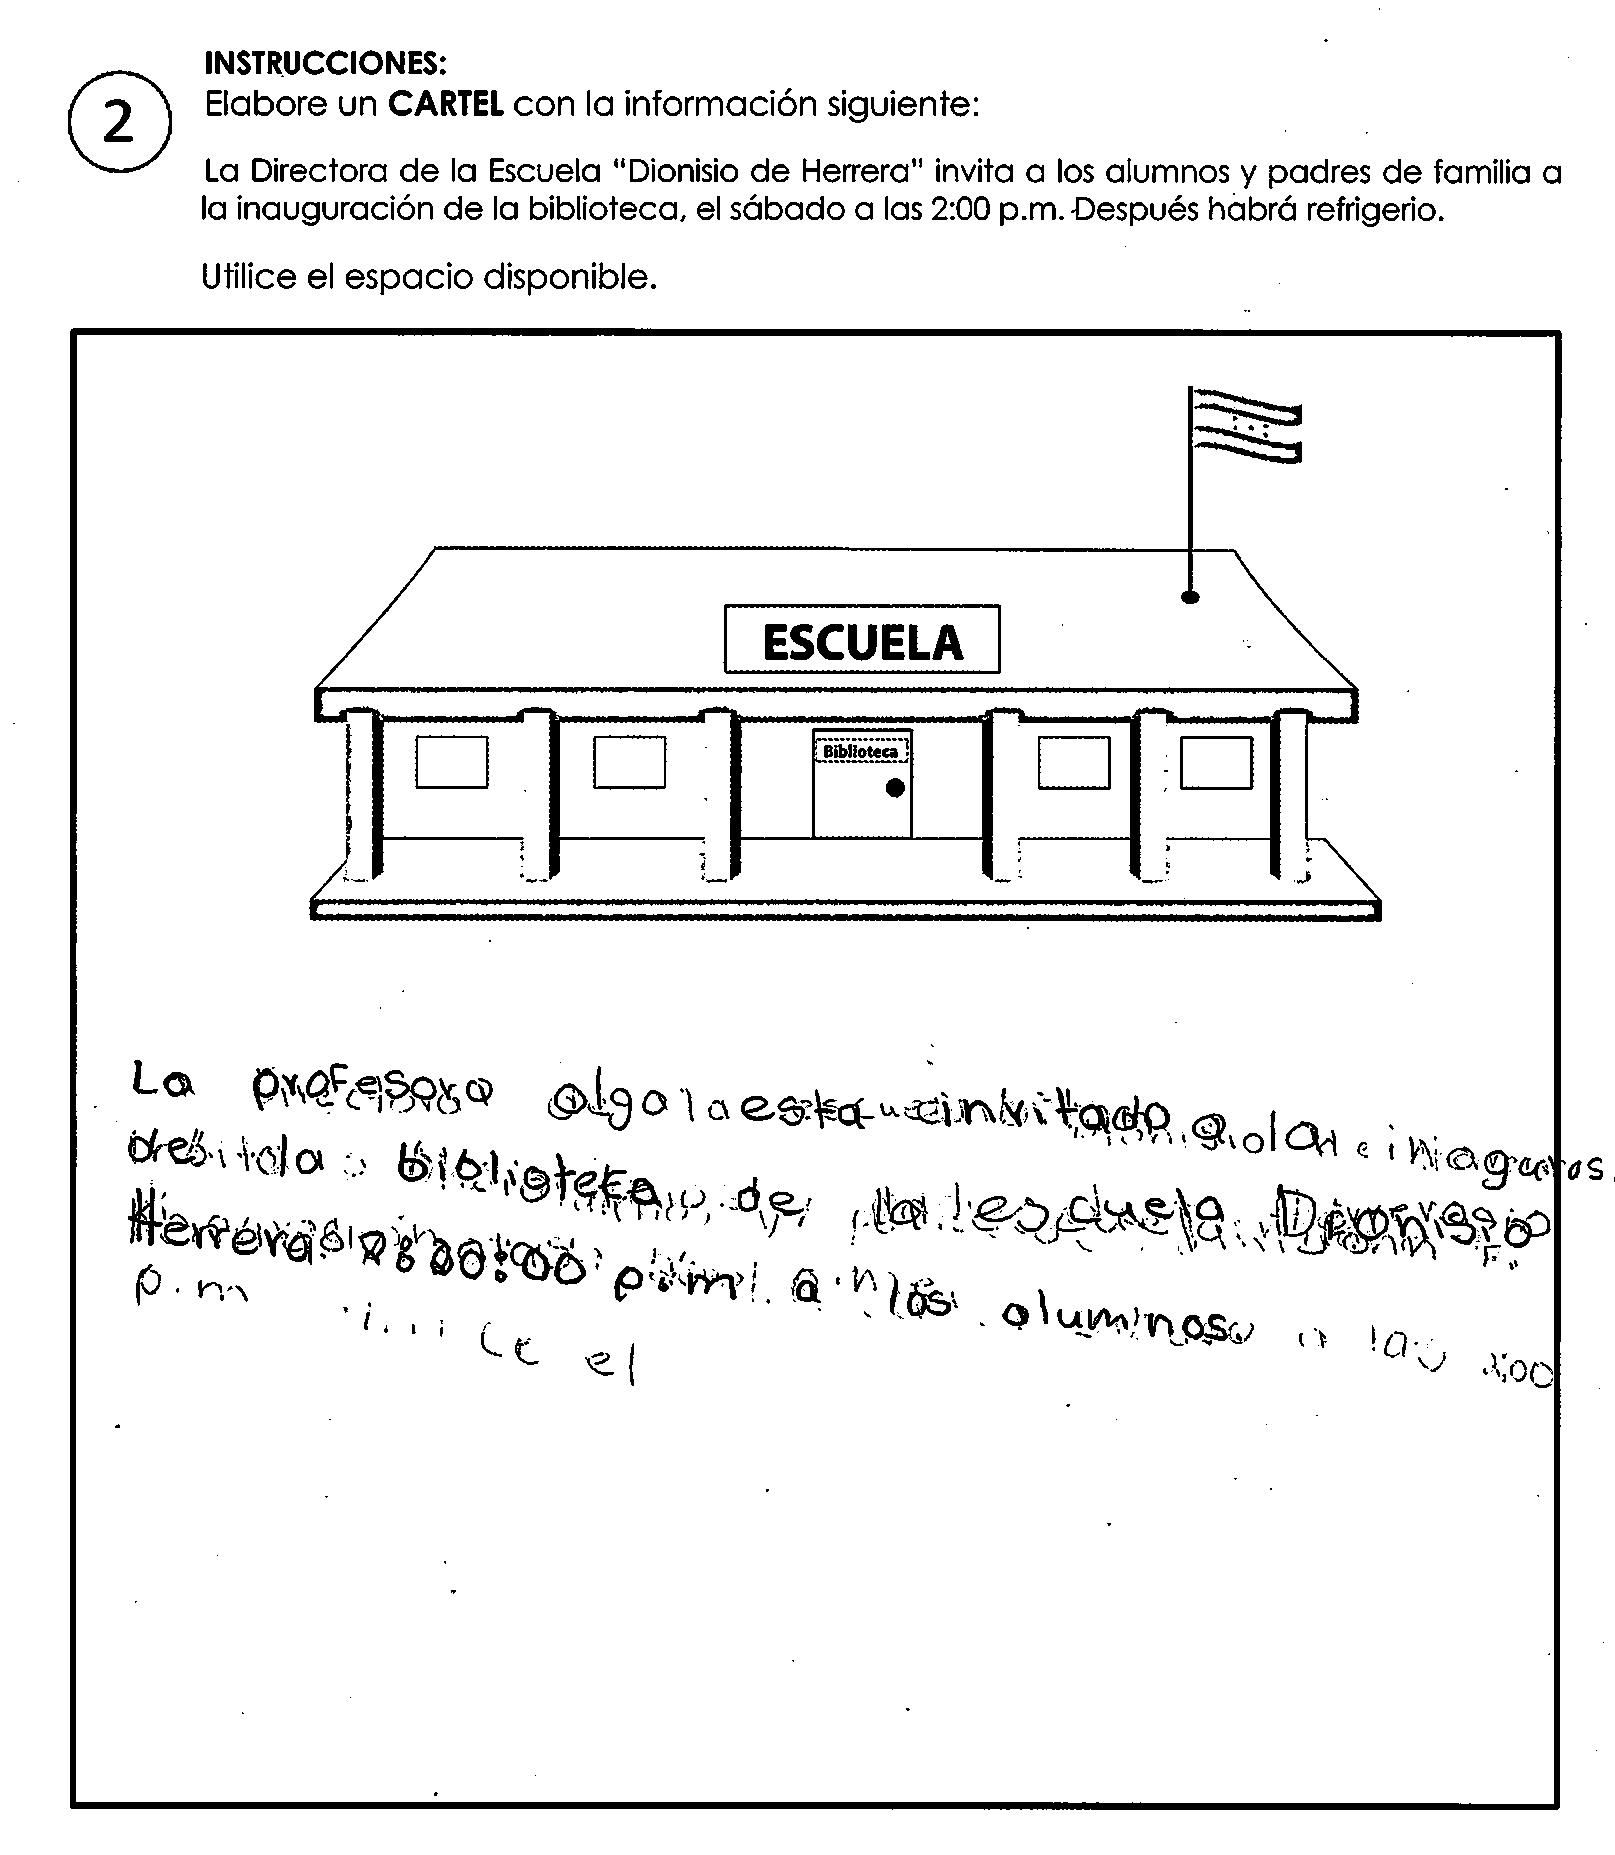 INSTRUCCIONES:
2
Elabore un CARTEL con la información siguiente:
La Directora de la Escuela "Dionisio de Herrera" invita a los alumnos y padres de familia a
la inauguración de la biblioteca, el sábado a las 2:00 p.m. Después habrá refrigerio.
Utilice el espacio disponible.
ESCUELA
Biblioteca
La profesora olga la esta invitado a la
biblioteca de la escuela Dionisio
Herrera p.m a los alumnos
p.m el